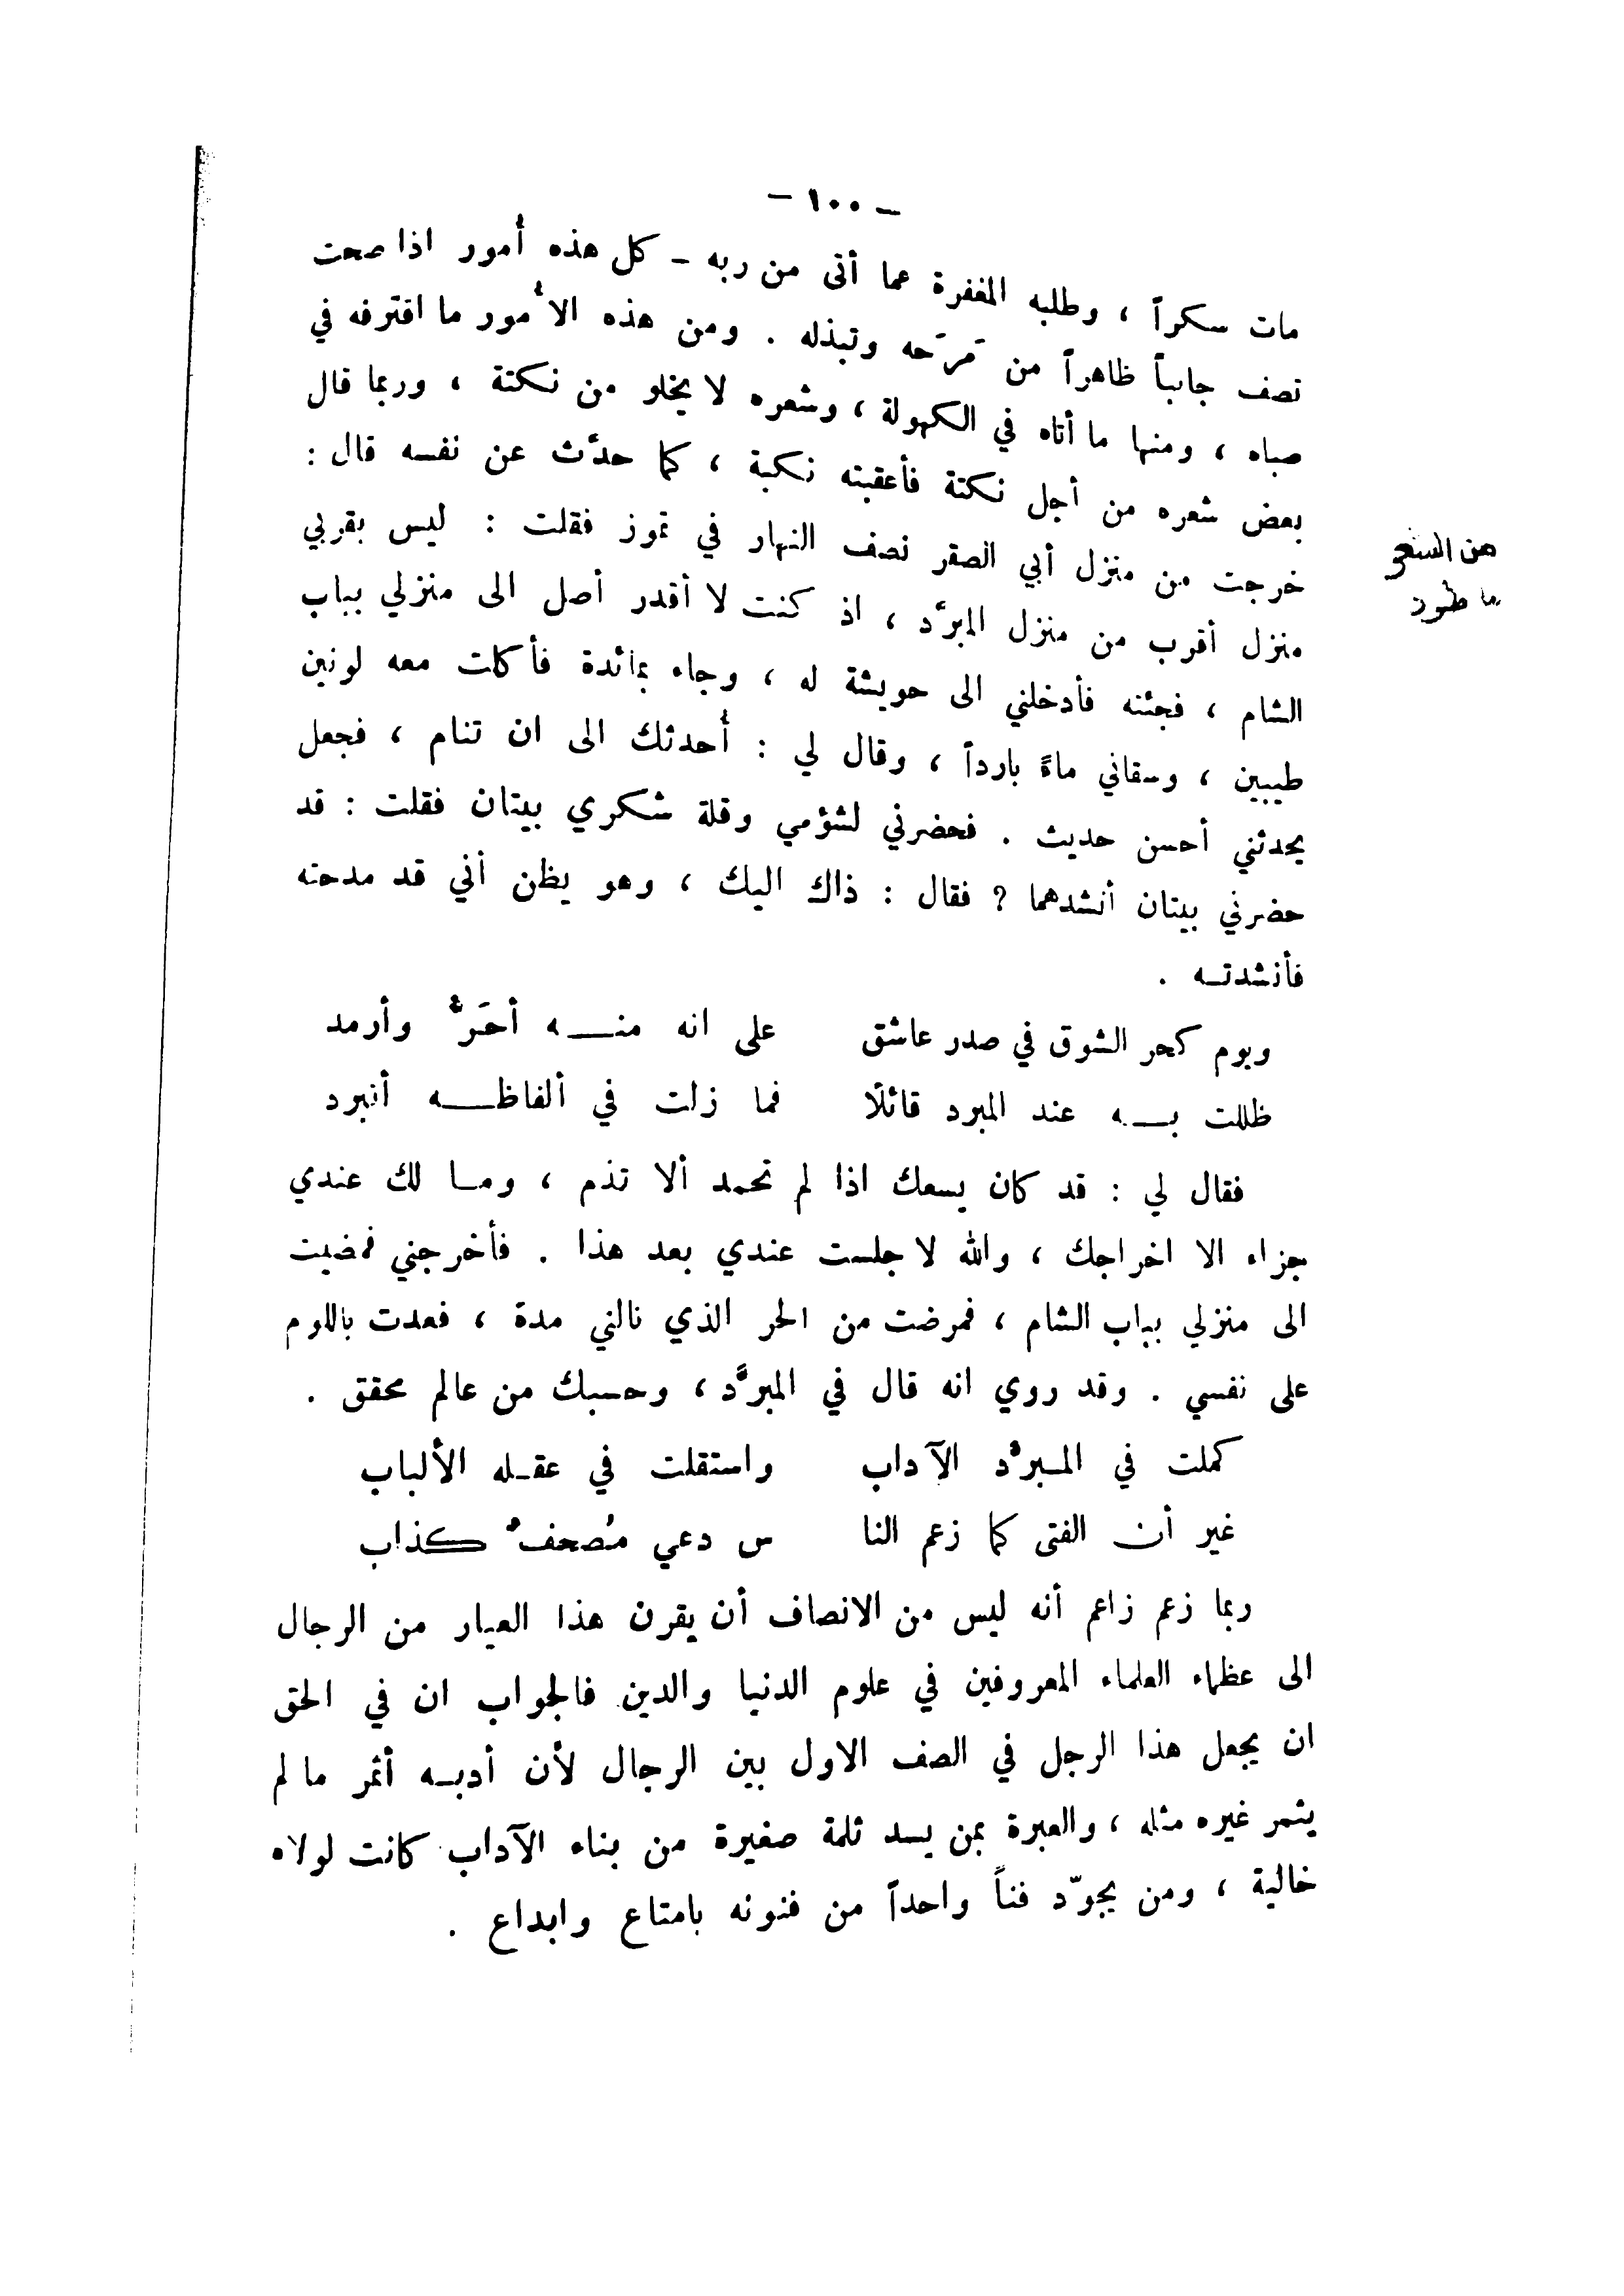 — ١٠٠ —
مات سكراً ، وطلبه المغفرة عما أتى من ربه – كل هذه أمور اذا صحت
تصف جانباً ظاهراً من مَرَحه وتبذله . ومن هذه الأمور ما اقترفه في
صباه ، ومنها ما أتاه في الكهولة ، وشعره لا يخلو من نكتة ، وربما قال
بعض شعره من أجل نكتة فأعقبته نكبة ، كما حدّث عن نفسه قال :
خرجت من منزل أبي الصقر نصف النهار في تموز فقلت : ليس بقربي
منزل أقرب من منزل المبرّد ، اذ كنت لا أقدر أصل الى منزلي بباب
الشام ، فجئته فأدخلني الى حويشة له ، وجاء بمائدة فأكلت معه لونين
طيبين ، وسقاني ماءً بارداً ، وقال لي : أحدثك الى ان تنام ، فجعل
يحدثني أحسن حديث . فحضرني لشؤمي وقلة شكري بيتان فقلت : قد
حضرني بيتان أنشدهما ؟ فقال : ذاك اليك ، وهو يظن أني قد مدحته
فأنشدتـه .
ويوم كحر الشوق في صدر عاشق على انه منـــه أحَرُّ وأرمد
ظللت بــه عند المبرد قائلًا فما زلت في ألفاظــه أتبرد
فقال لي : قد كان يسعك اذا لم تحمد ألا تذم ، ومـا لك عندي
جزاء الا اخراجك ، والله لا جلست عندي بعد هذا . فأخرجني فمضيت
الى منزلي بباب الشام ، فمرضت من الحر الذي نالني مدة ، فعدت باللوم
على نفسي . وقد روي انه قال في المبرَّد ، وحسبك من عالم محقق .
كملت في المـبرّد الآداب واستقلت في عقـله الألباب
غير أن الفتى كما زعم النا س دعي مُصحفٌ كذاب
ربما زعم زاعم أنه ليس من الانصاف أن يقرن هذا العيار من الرجال
الى عظماء العلماء المعروفين في علوم الدنيا والدين فالجواب ان في الحق
ان يجعل هذا الرجل في الصف الاول بين الرجال لأن أدبـه أثمر ما لم
يثمر غيره مثله ، والعبرة بمن يسد ثلمة صغيرة من بناء الآداب كانت لولاه
خالية ، ومن يجوّد فناً واحداً من فنونه بامتاع وابداع .
من الشعر
ما طرد